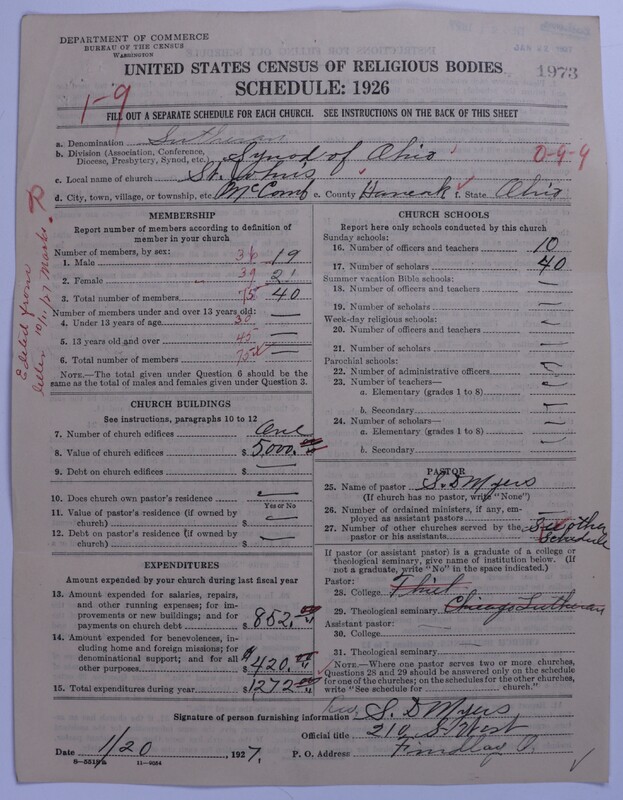 DEPARTMENT OF COMMERCE
BUREAU OF THE CENSUS
WASHINGTON
UNITED STATES CENSUS OF RELIGIOUS BODIES
SCHEDULE: 1926
1973
1-9
FILL OUT A SEPARATE SCHEDULE FOR EACH CHURCH. SEE INSTRUCTIONS ON THE BACK OF THIS SHEET
a. Denomination Lutheran
b. Division (Association, Conference, Diocese, Presbytery, Synod, etc.) Synod of Ohio 0-9-9
c. Local name of church St. John's
d. City, town, village, or township, etc. McComb e. County Hancock f. State Ohio
Edited from letter 10/11/27
MEMBERSHIP
Report number of members according to definition of
member in your church
Number of members, by sex:
1. Male 36 19
2. Female 39 21
3. Total number of members 75 40
Number of members under and over 13 years old:
4. Under 13 years of age 30 —
5. 13 years old and over 45 —
6. Total number of members 75 —
NOTE.—The total given under Question 6 should be
the same as the total of males and females given under Question 3.
CHURCH BUILDINGS
See instructions, paragraphs 10 to 12
7. Number of church edifices One
8. Value of church edifices $ 5,000.00
9. Debt on church edifices $ —
10. Does church own pastor's residence —
Yes or No
11. Value of pastor's residence (if owned by
church) $ —
12. Debt on pastor's residence (if owned by
church) $ —
EXPENDITURES
Amount expended by your church during last fiscal year
13. Amount expended for salaries, repairs,
and other running expenses; for im-
provements or new buildings; and for
payments on church debt $ 852.00
14. Amount expended for benevolences, in-
cluding home and foreign missions; for
denominational support; and for all
other purposes $ 420.00
15. Total expenditures during year $ 1272.00
CHURCH SCHOOLS
Report here only schools conducted by this church
Sunday schools:
16. Number of officers and teachers 10
17. Number of scholars 40
Summer vacation Bible schools:
18. Number of officers and teachers —
19. Number of scholars —
Week-day religious schools:
20. Number of officers and teachers —
21. Number of scholars —
Parochial schools:
22. Number of administrative officers —
23. Number of teachers—
a. Elementary (grades 1 to 8) —
b. Secondary —
24. Number of scholars—
a. Elementary (grades 1 to 8) —
b. Secondary —
PASTOR
25. Name of pastor S. D Myers
(If church has no pastor, write "None")
26. Number of ordained ministers, if any, em-
ployed as assistant pastors
27. Number of other churches served by the
pastor or his assistants See other Schedule
If pastor (or assistant pastor) is a graduate of a college or
theological seminary, give name of institution below. (If
not a graduate, write "No" in the space indicated.)
Pastor:
28. College Thiel
29. Theological seminary Chicago Lutheran
Assistant pastor:
30. College —
31. Theological seminary —
NOTE.—Where one pastor serves two or more churches,
Questions 28 and 29 should be answered only on the schedule
for one of the churches; on the schedules for the other churches,
write "See schedule for ... church."
Signature of person furnishing information Rev. S. D Myers
Official title 210 S. West
Date 1/20 1927. P. O. Address Findlay O.
8-5518a 11-4054